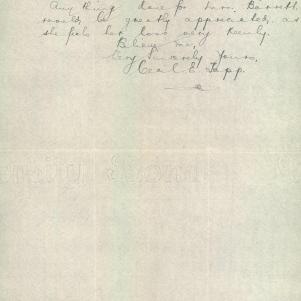 Any thing done for Mrs. Barnett
would be greatly appreciated, as
she feels her loss very keenly.
Believe me,
Very sincerely Yours,
Cecil E. Tapp.